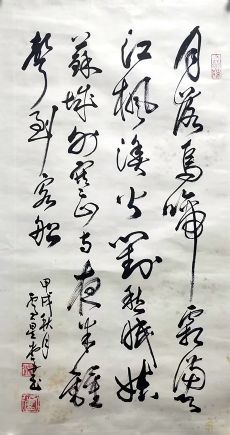 月落烏啼霜滿天
江楓漁火對愁眠姑
蘇城外寒山寺夜半鐘
聲到客船
甲戌秋月